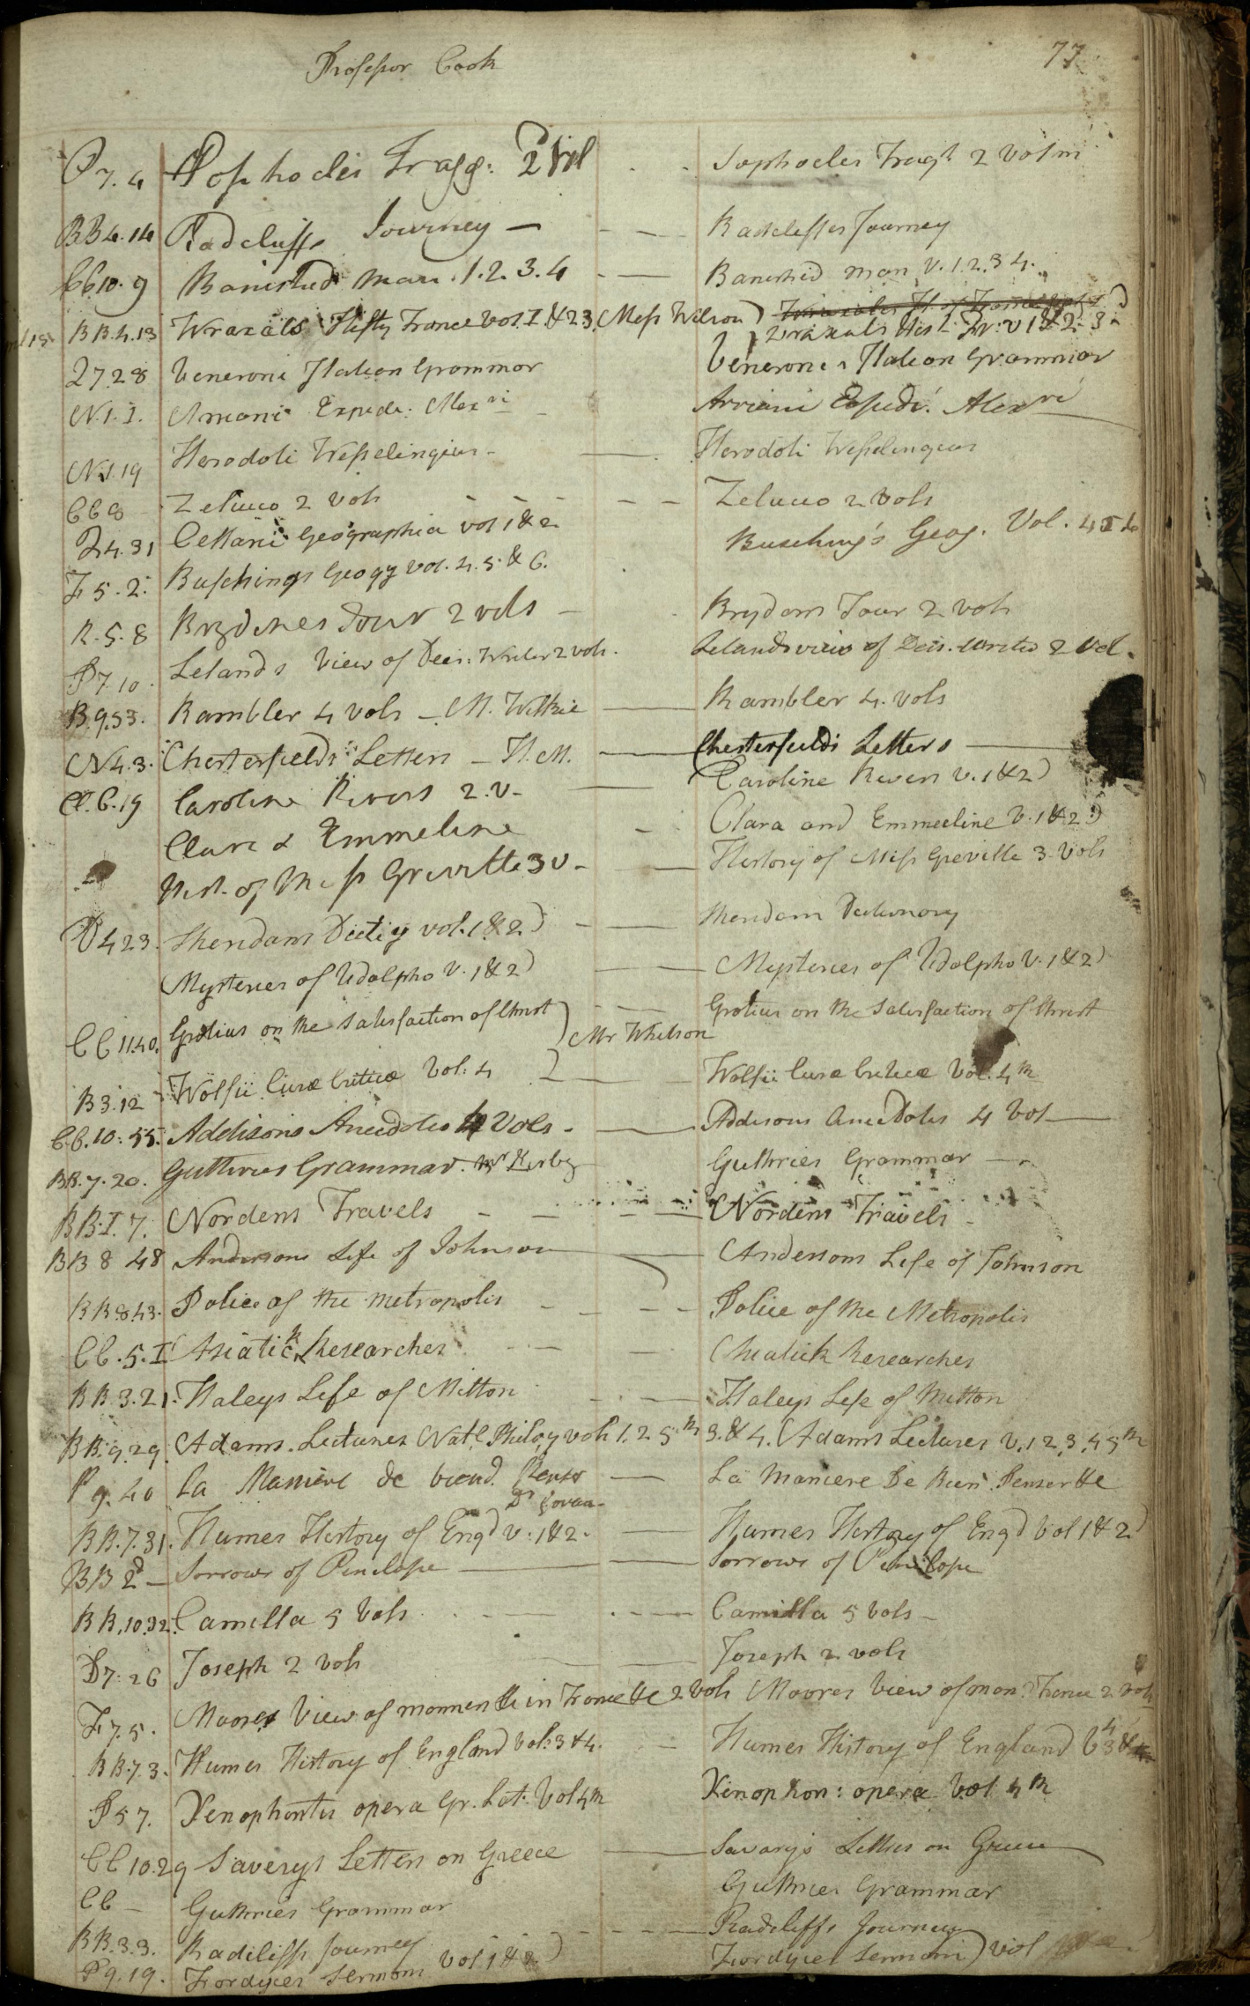 Professor Cook
77
P 7. 4 Sophocles Tragg: 2 Vol - - Sophocles Tragk 2 Volm
BB4.14 Radcliffs Journey — - — Radcliffes Journey
CC10.9 Banished Man. 1. 2. 3. 4 - — Banished man V. 1. 2. 3 4.
BB.4.13 Wraxals Histy France Vol. I. & 2 3. (Miss Wilson) Wraxals Hist. Fr: V 1 & 2. 3.
2 7 28 Veneroni Italian Grammar Veneroni's Italian Grammar
N. 1. I. Arriani Expedi: Alexri - Arriani Expedi: Alexri
N.1.19 Herodoti Wesselingius - — Herodoti Wesselingius
CC 8 Zeluco 2 Vols - - - Zeluco 2 Vols
Z4.31 Cellarii Geographia vol 1 & 2
F 5. 2. Buschings Geogy vol. 4. 5. & 6. Busching's Geog. Vol. 4 5 6
R. 5. 8 Brydones Tour 2 vols — Brydons Tour 2 vols
P7.10 Lelands View of Deis. Writer 2 vols. Lelands view of Deis. writers 2 Vol.
B.9.53. Rambler 4 Vols — M. Wilkie — Rambler 4. Vols
N4.3. Chesterfields Letters — H. M. — Chesterfields Letters —
CC.6.19 Caroline Rivers 2. V. — Caroline Rivers V. 1 & 2)
Clara & Emmeline - Clara and Emmeline V. 1 & 2)
Hist. of Miss Greville 3 V - — History of Miss Greville 3 Vols
D 4 23. Sheridans Dicty vol. 1 & 2) - — Sheridan Dictionary
Mysteries of Udolpho V. 1 & 2) — Mysteries of Udolpho V. 1 & 2)
CC 11.40. Grotius on the Satisfaction of Christ ) Mr Whitson Grotius on the Satisfaction of Christ
B3.12 Wolfii Curæ Criticæ Vol: 4 — Wolfii Curæ Criticæ Vol. 4th
CC.10.55. Addisons Anecdotes 4 Vols. — Addisons Anecdotes 4 Vol —
BB.7.20. Guthries Grammar. Guthries Grammar —
BB. I. 7. Nordens Travels - — — Nordens Travels
BB 8 48 Andersons Life of Johnson — Andersons Life of Johnson
BB.8.43. Police of the Metropolis - - - Police of the Metropolis
CC. 5. I Asiatick Researches - — Asiatick Researches
BB.3.21. Haleys Life of Milton - — Haleys Life of Milton
BB.9.29. Adams. Lectures Natl. Philoy vols 1. 2 5th 3. & 4. Adams Lectures V. 1 2 3, 4 5th
P 9. 40 La Maniere de bien Penser — La Maniere De Bien Penser &c
BB.7.31. Humes History of Engd V. 1 & 2. — Humes History of Engd Vol 1 & 2)
BB 2d — Sorrows of Penelope — Sorrows of Penelope
BB.10.32. Camilla 5 Vols - — Camilla 5 Vols —
P7.26 Joseph 2 Vols — Joseph 2 vols
F.7.5. Moores View of manners &c in France &c 2 Vols Moores View of man. France 2 Vols
BB.7.3. Humes History of England Vol: 3 & 4. — Humes History of England V 3 & 4
P 5 7. Xenophontis opera Gr. Lat. Vol 4th Xenophon: opera Vol. 4th
CC 10.29 Saverys Letters on Greece — Savary's Letters on Greece
CC — Guthries Grammar Guthries Grammar
BB.3.3. Radcliffs Journey - - - — Radcliffs Journey
P9.19. Fordyces Sermons Vol. 1 & 2) Fordyces Sermons) Vol